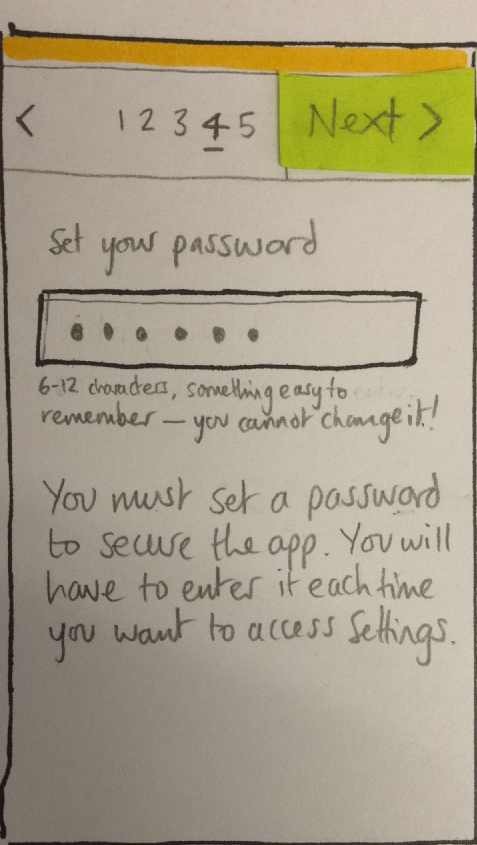 < 1 2 3 4 5 Next >
Set your password
6-12 characters, something easy to
remember — you cannot change it!
You must set a password
to secure the app. You will
have to enter it each time
you want to access Settings.